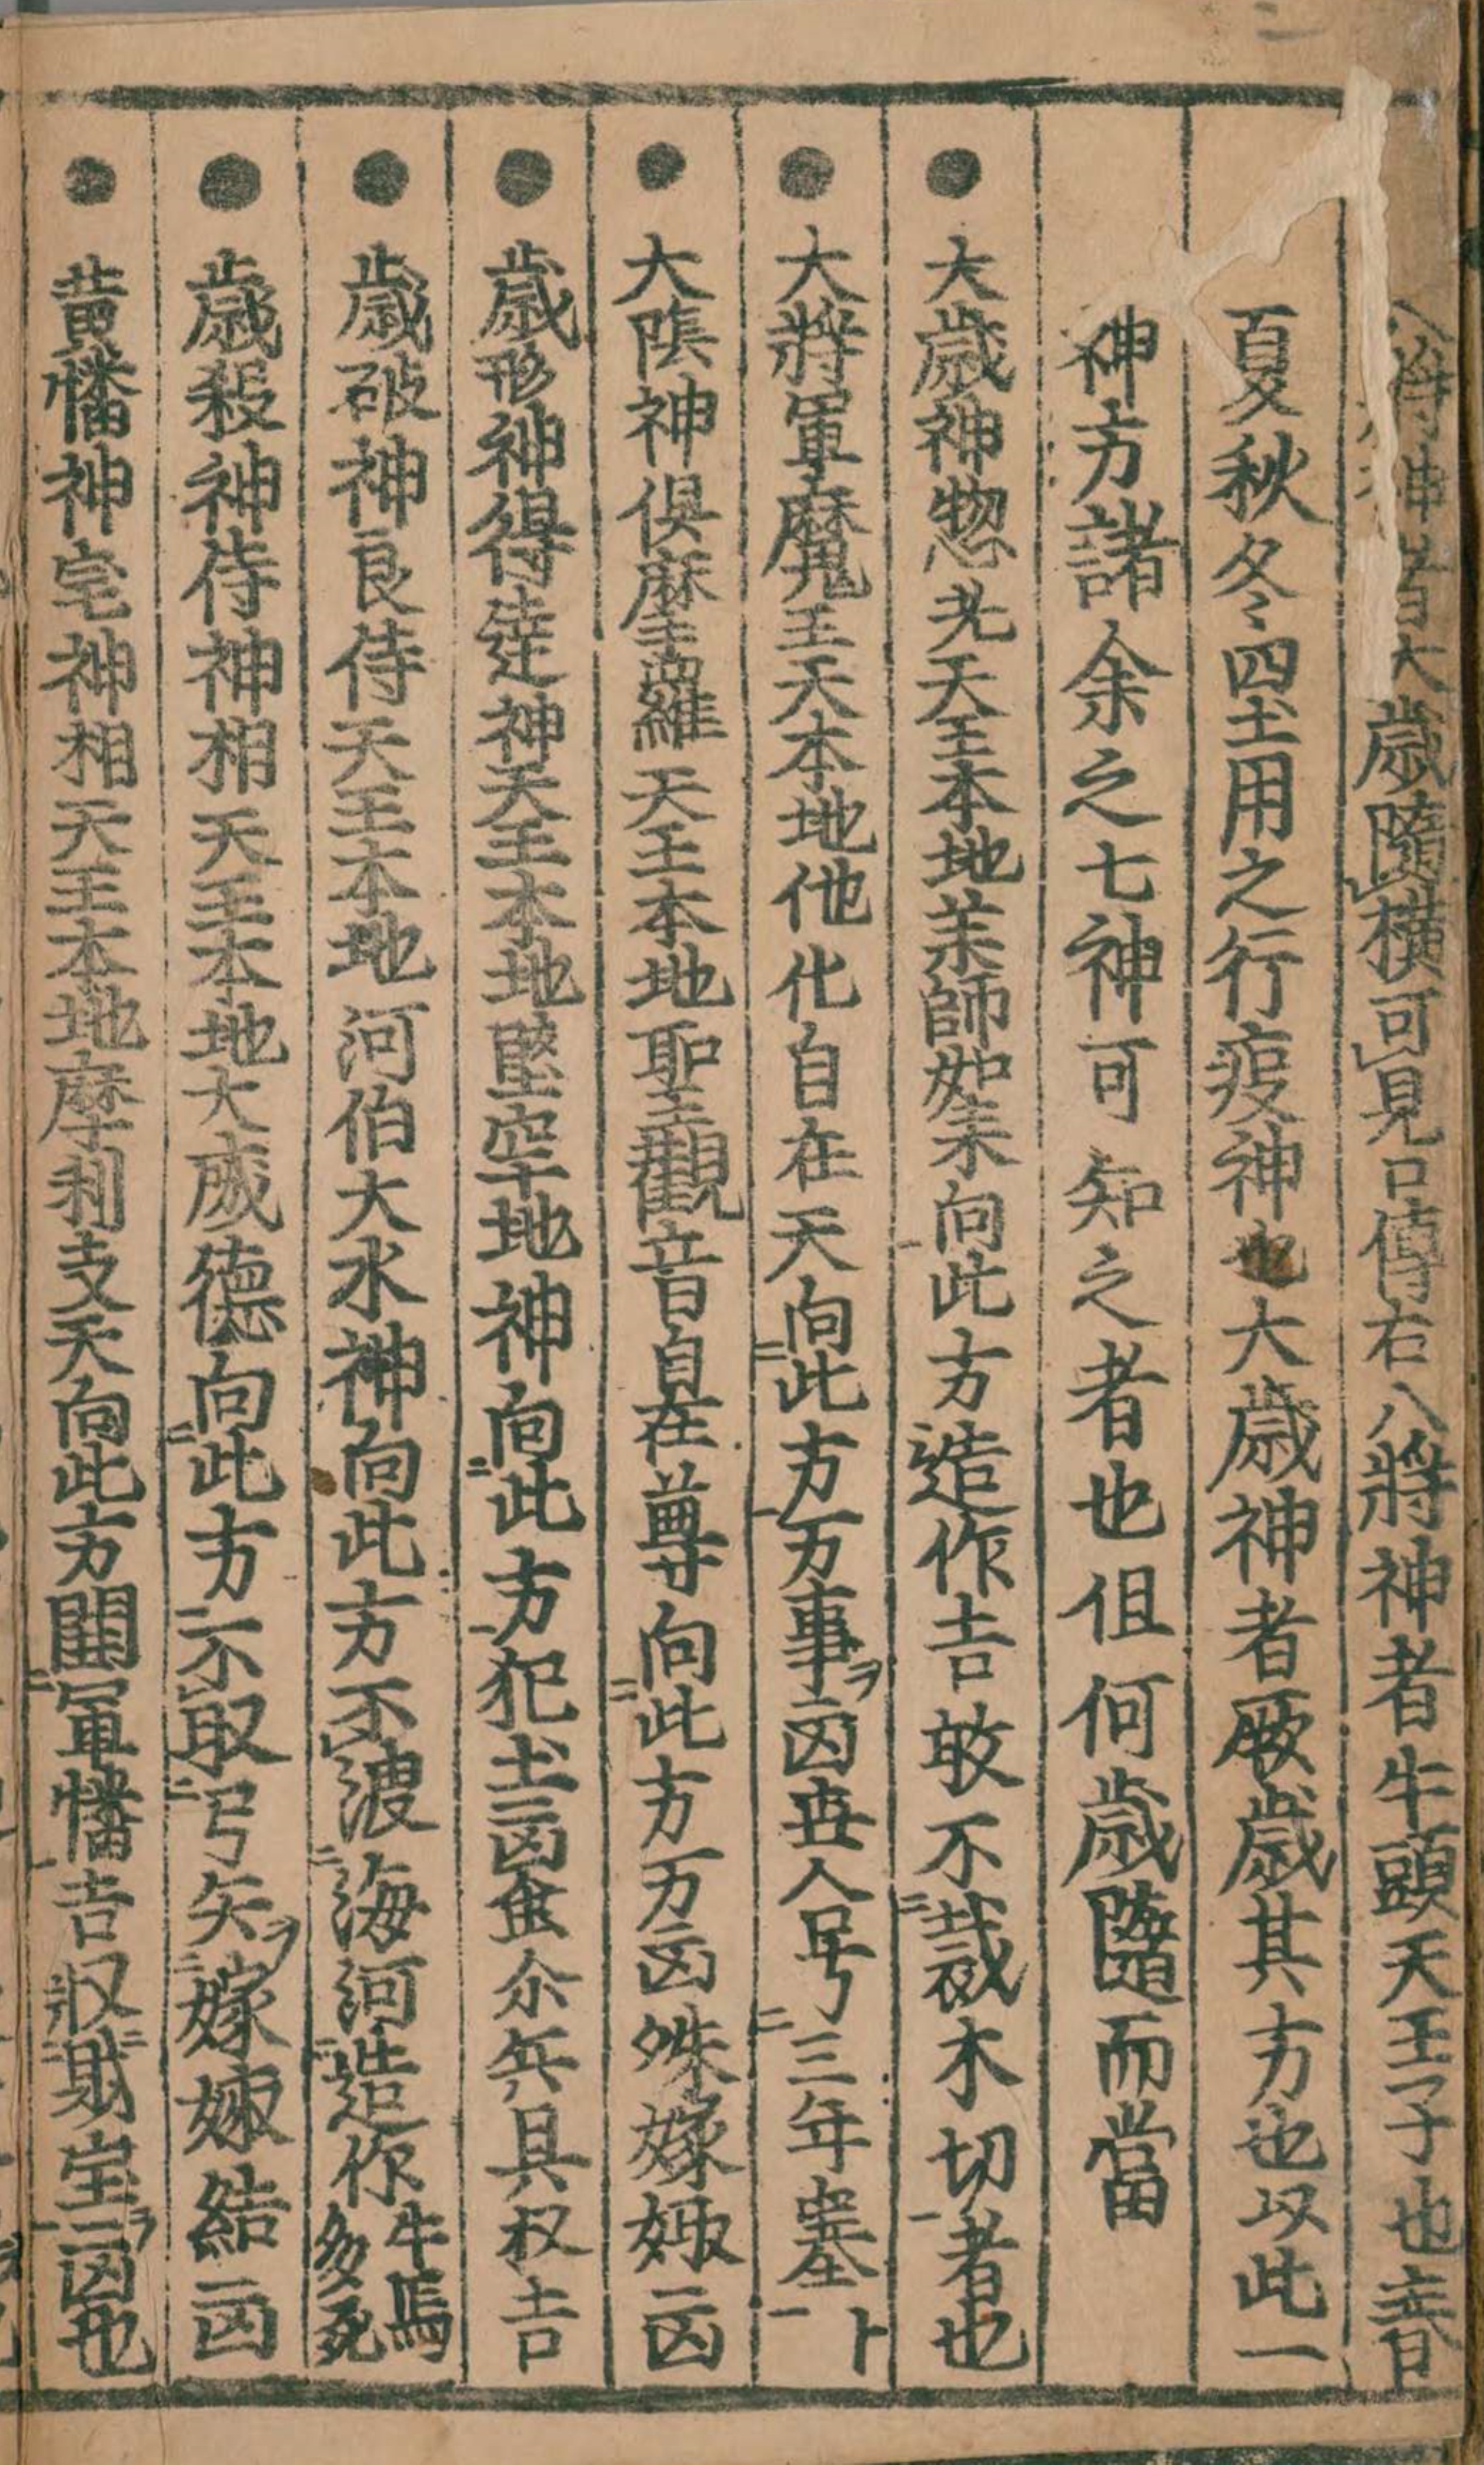 八将神者大歳隨横可見口傳右八將神者牛頭天王王子也春
夏秋冬四土用之行疫神也大歳神者厥歳其方也以此一
神方諸余之七神可知之者也但何歳隨而當
●大歳神惣光天王本地藥師如来向此方造作吉敢不裁木切者也
●大將軍魔王天王本地他化自在天向此方万事ヲ凶世人号三年塞ト
●大隂神倶摩羅天王本地聖觀音自在尊向此方万凶殊嫁娵凶
●歳形神得達神天王本地堅牢地神向此方犯土凶但尒兵具収吉
●歳破神良侍天王本地河伯大水神向此方不渡海河造作牛馬多死
●歳殺神侍神相天王本地大威德向此方不取弓矢ヲ嫁娵結凶
●黄幡神宅神相天王本地摩利支天向此方開軍幡吉収財宝ヲ凶也